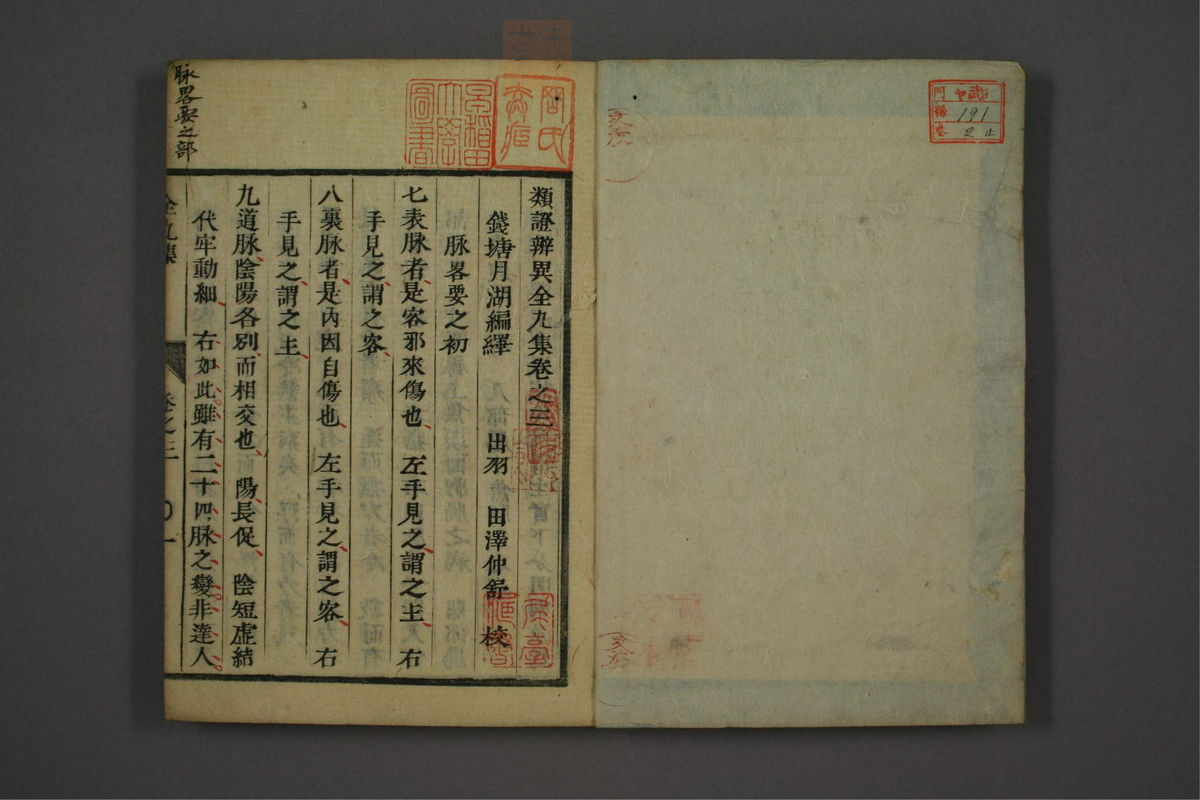 門 191
番
巻 2 止
早稲田
大學
圖書
類證辨異全九集卷之三
錢塘月湖編繹 出羽 田澤仲舒 校
脉畧要之初
七表脉者是客邪來傷也 左手見之謂之主 右
手見之謂之客
八裏脉者是內因自傷也 左手見之謂之客 右
手見之謂之主
九道脉陰陽各別而相交也 陽長促 陰短虛結
代牢動細 右如此雖有二十四脉之變非達人
全九集 卷之三 〇一
脉畧要之部